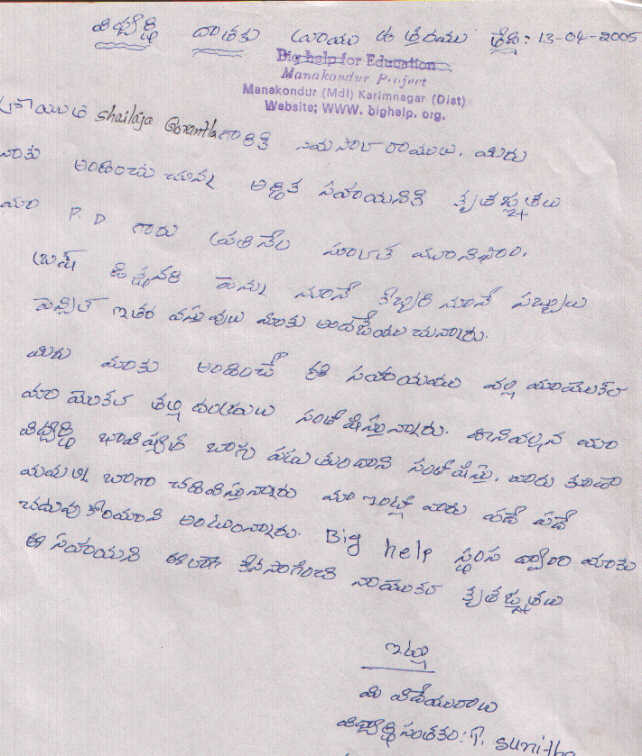 విద్యార్థి దాతకు వ్రాయు ఉత్తరము తేది: 13-04-2005
Big help for Education
Manakondur Project
Manakondur (Mdl) Karimnagar (Dist)
Website; WWW. bighelp. org.
Shailaja Gorantla గారికి నమస్కారములు. మీరు
నాకు అందించుచున్న ఆర్థిక సహాయానికి కృతజ్ఞతలు
మా P. D గారు ప్రతి నెల
బ్రష్ డిక్షనరి పెన్ను నూనె కొబ్బరి నూనె సబ్బులు
పెన్సిల్ ఇతర వస్తువులు మాకు అందజేయుచున్నారు.
మీరు మాకు అందించే ఈ సహాయము వల్ల మాయొక్క
మా యొక్క తల్లి దండ్రులు సంతోషిస్తున్నారు. దానివల్లన మా
విద్యార్థి భావిష్యత్ బాగు పడుతుందని సంతోషిస్తు, వారు కూడా
మమల్ని బాగా చదివిస్తున్నారు మా ఇంట్లో వారు పదే పదే
చదువుకోమని అంటున్నారు. Big help సంస్థ ద్వారా మాకు
ఈ సహాయని ఈలాగే కొనసాగించి నాయొక్క కృతజ్ఞతలు
ఇట్లు
మీ విదేయురాలు
విద్యార్థి సంతకం: P. Sunitha